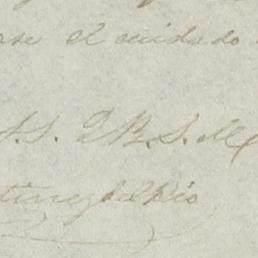 ase el cuidado
S.S. Q.B.S.M.
tinez del Rio